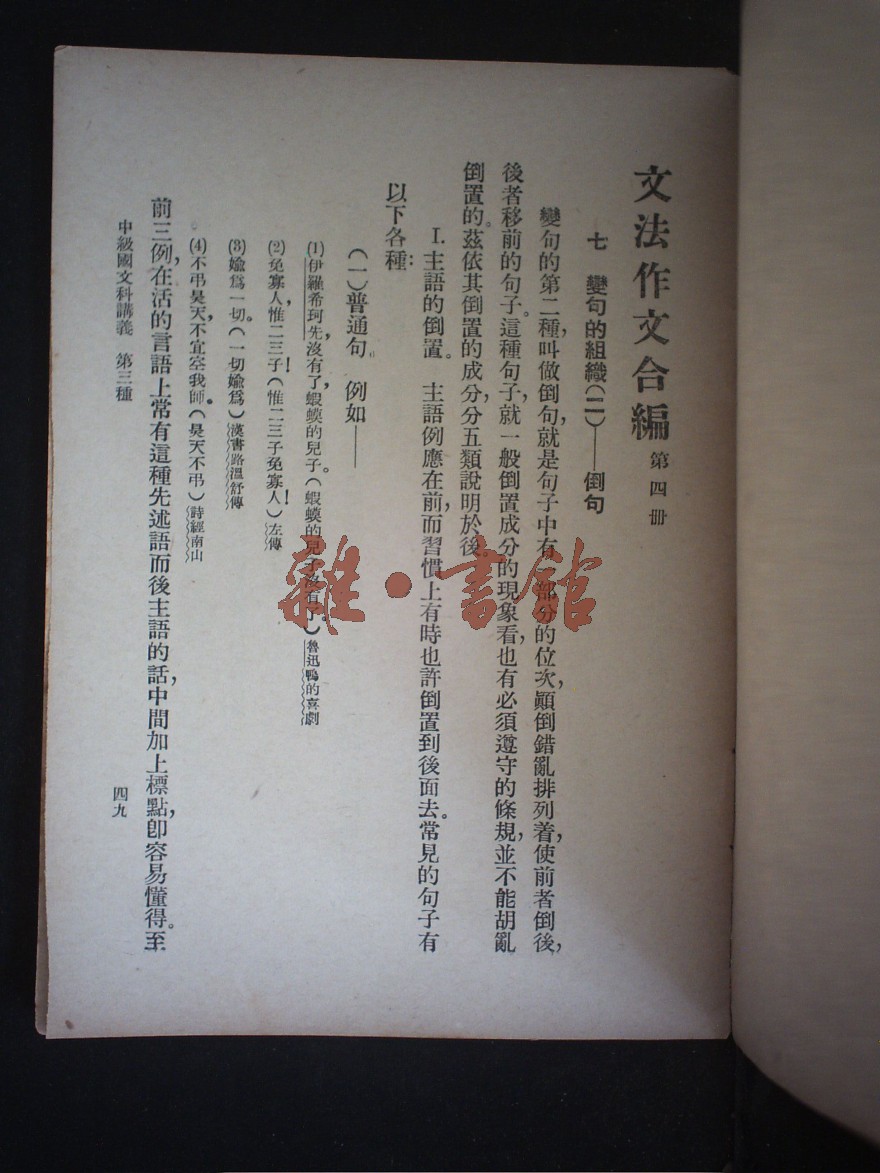 文法作文合編 第四冊
七 變句的組織(二)——倒句
變句的第二種,叫做倒句,就是句子中有一部分的位次,顚倒錯亂排列着,使前者倒後,
後者移前的句子。這種句子,就一般倒置成分的現象看,也有必須遵守的條規,並不能胡亂
倒置的。茲依其倒置的成分,分五類說明於後。
I. 主語的倒置。 主語例應在前,而習慣上有時也許倒置到後面去。常見的句子有
以下各種:
(一)普通句。 例如——
(1)伊羅希珂先,沒有了,蝦蟆的兒子。(蝦蟆的兒子沒有了。)魯迅鴨的喜劇
(2)免寡人,惟二三子!(惟二三子免寡人!)左傳
(3)媮爲一切。(一切媮爲)漢書路溫舒傳
(4)不弔昊天,不宜空我師。(昊天不弔)詩經南山
前三例,在活的言語上常有這種先述語而後主語的話,中間加上標點,卽容易懂得。至
中級國文科講義 第三種
四九
雜·書館